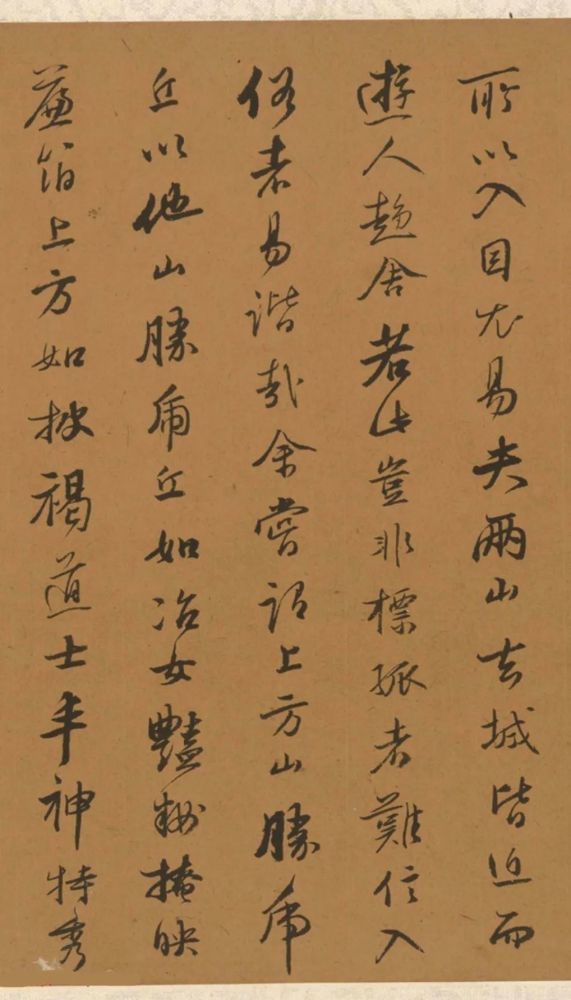 所以入目尤易夫兩山去城皆近而
遊人趨舍若此豈非標孤者難信入
俗者易諧哉余嘗謂上方山勝虎
丘以他山勝虎丘如冶女艷粉掩映
簾箔上方如披褐道士丰神特秀